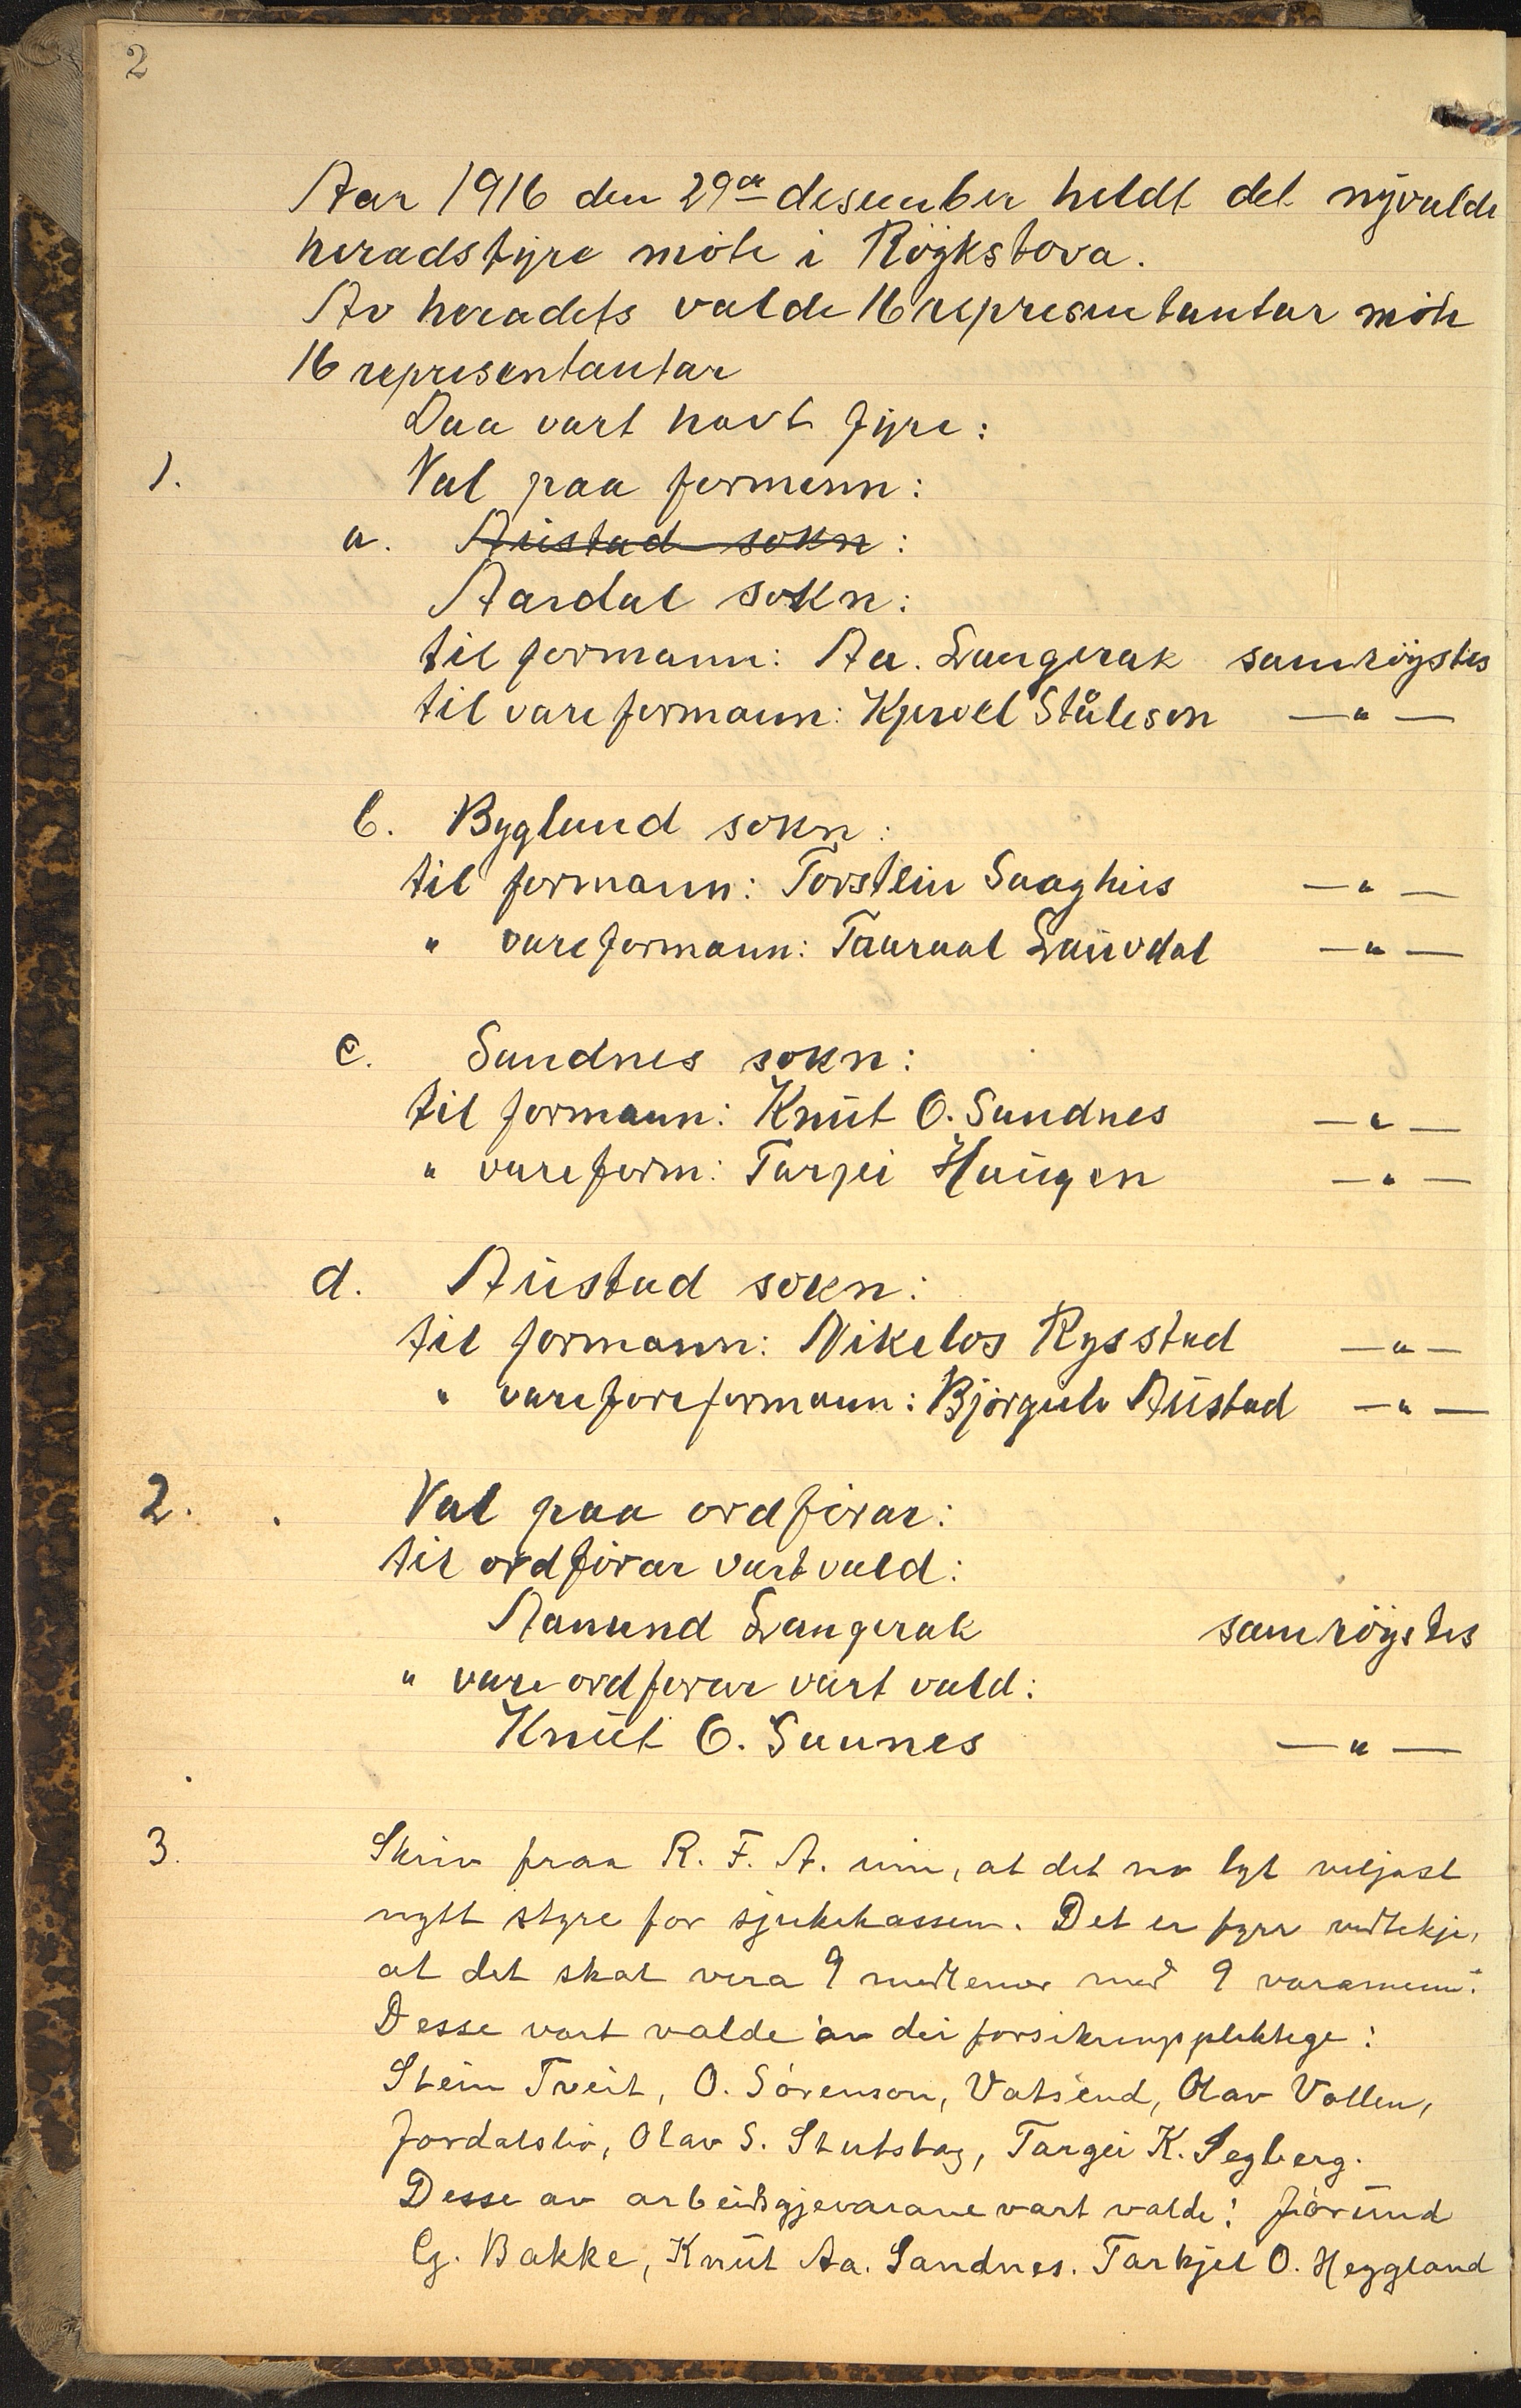 2
Aar 1916 den 29de desember heldt det nyvalde
heradstyre møte i Röykstova.
Av heradets valde 16 representantar møtte
16 representantar
Daa vart havt fyre:
1. Val paa formenn:
a. Austad sokn:
Aardal sokn:
til formann: Aa. Langerak samröystes
til vareformann: Kjetil Ståleson —"—
b. Bygland sokn:
til formann: Torstein Saaghus —"—
" vareformann: Tauraal Lauvdal —"—
c. Sandnes sokn:
til formann: Knut O. Sandnes —"—
" vareform: Targei Haugen —"—
d. Austad sokn:
til formann: Nikelos Rysstad —"—
" vareforeformann: Björgulv Austad —"—
2. Val paa ordförar:
til ordförar vart vald:
Aanund Langerak samröystes
" vareordförar vart vald:
Knut O. Sannes —"—
3. Skriv fraa R. F. A. um, at det no lyt veljast
nytt styre for sjukekassen. Det er fyrr vedtekje,
at det skal vera 9 medlemer med 9 varamenn.
Desse vart valde av dei forsikringspliktige:
Stein Tveit, O. Sörenson, Vatsend, Olav Vollen,
Jordalsbö, Olav S. Stutstøy, Targei K. Segberg.
Desse av arbeidsgjevarane vart valde: Jörund
G. Bakke, Knut Aa. Sandnes. Tarkjel O. Heggland